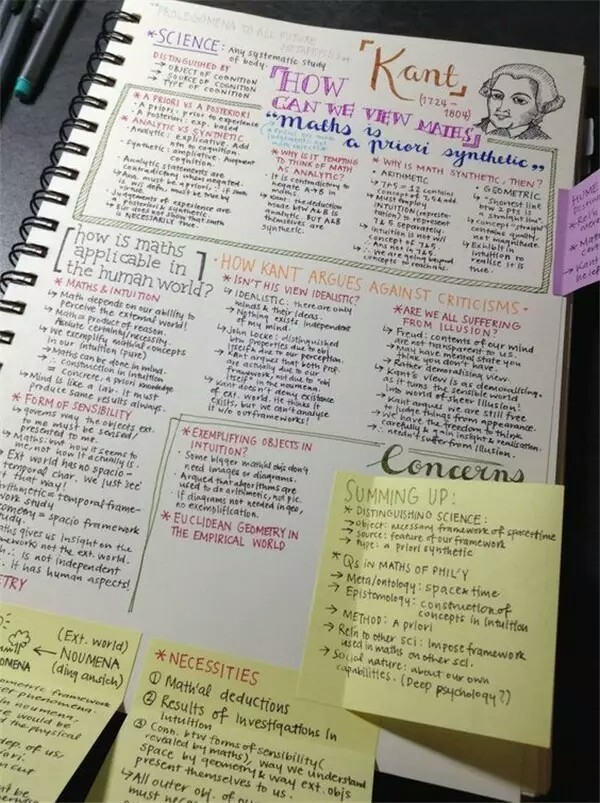 "PROLEGOMENA TO ALL FUTURE
METAPHYSICS"
*SCIENCE: Any systematic study
of body.
DISTINGUISHED BY
↳ OBJECT OF COGNITION
↳ SOURCE OF COGNITION
↳ TYPE OF COGNITION
「Kant」
(1724-
1804)
「HOW
CAN WE VIEW MATHS」
"maths is
a priori synthetic"
* A PRIORI VS A POSTERIORI
A priori: prior to experience
A posteriori: exp. based
* ANALYTIC VS SYNTHETIC
Analytic: explicative. Add
nth to cognition.
Synthetic: ampliative. Augment
cognition.
Analytic statements are
contradicting when negated.
Judgements of experience are
always synthetic.
is NECESSARILY TRUE.
* WHY IS IT TEMPTING
TO THINK OF MATH
AS ANALYTIC?
↳ It is contradicting to
negate A → B in
math.
themselves are
synthetic.
* WHY IS MATH SYNTHETIC, THEN?
• ARITHMETIC
↳ 7+5=12 contains
concept of 7, 5 & add.
↳ Must employ
INTUITION (repres-
tation) to represent
7 & 5 separately.
↳ Intuition is not w/i
concept of 7&5.
∴ And not in 7+5.
↳ ∴ we are going beyond
concepts to reach ans.
• GEOMETRIC
↳ "Shortest line
btw 2 pts is
a straight line"
↳ concept: straight
contains quality,
not magnitude.
↳ Exhibit in
intuition to
realise it is
true.
HUME
[how is maths
applicable in
the human world?]
* MATHS & INTUITION
↳ Math depends on our ability to
perceive the external world!
↳ Math a product of reason.
Absolute certainty/necessity.
↳ We exemplify math'al concepts
in our intuition (pure)
↳ Maths can be done in mind.
→ Construction in intuition
= Concepts, a priori knowledge
↳ Mind is like a lab. It must
produce same results always.
* FORM OF SENSIBILITY
↳ governs way the objects ext.
to me must be sensed/
presented to me.
↳ Maths: but how it seems to
me, not how it actually is.
Ext world has no spacio-
temporal char. We just 'see'
it that way!
arithmetic = temporal frame-
work study
geometry = spacio framework
study.
Maths gives us insight on the
frameworks not the ext. world.
Math ∴ is not independent
∴ It has human aspects!
• HOW KANT ARGUES AGAINST CRITICISMS •
* ISN'T HIS VIEW IDEALISTIC?
↳ IDEALISTIC: there are only
minds & their ideas.
↳ Nothing exists independent
of my mind.
↳ John Locke: distinguished
btw properties due to obj
itself & due to our perception.
↳ Kant argues that both prop.
are actually due to our
framework, not due to 'obj
itself' in the noumena.
↳ Kant doesn't deny existence
of ext. world. He thinks it
exists, but we can't analyse
it w/o our frameworks!
* ARE WE ALL SUFFERING
FROM ILLUSION?
↳ Freud: contents of our mind
are not transparent to us.
↳ May have mental state you
think you don't have.
↳ Rather demoralising view.
↳ Kant's view is as demoralising,
as it turns the sensible world
into world of sheer illusion!
↳ Kant argues we are still free
to judge things from appearance.
↳ We have the freedom to think
carefully & gain insight & realisation.
∴ needn't suffer from illusion.
Concerns
* EXEMPLIFYING OBJECTS IN
INTUITION?
↳ Some bigger math'al objs don't
need images or diagrams.
↳ Argued that algorithms are
used to do arithmetic, not pic.
↳ If diagrams not needed in geo,
no exemplification.
* EUCLIDEAN GEOMETRY IN
THE EMPIRICAL WORLD
SUMMING UP:
* DISTINGUISHING SCIENCE:
→ Object: necessary framework of spacetime
→ Source: feature of our framework
→ Type: a priori synthetic
* Qs IN MATHS OF PHIL'Y
→ Meta/ontology: space & time
→ Epistomology: construction of
concepts in intuition
→ METHOD: A priori
→ Rel'n to other sci: Impose framework
used in maths on other sci.
→ Social nature: about our own
capabilities. (Deep psychology?)
(Ext. world)
← NOUMENA
(ding ansich)
*NECESSITIES
① Math'al deductions
② Results of investigations in
intuition
③ Conn. btw forms of sensibility (
revealed by maths), way we understand
space by geometry & way ext. objs
present themselves to us.
↳ All outer obj. of our
must nece